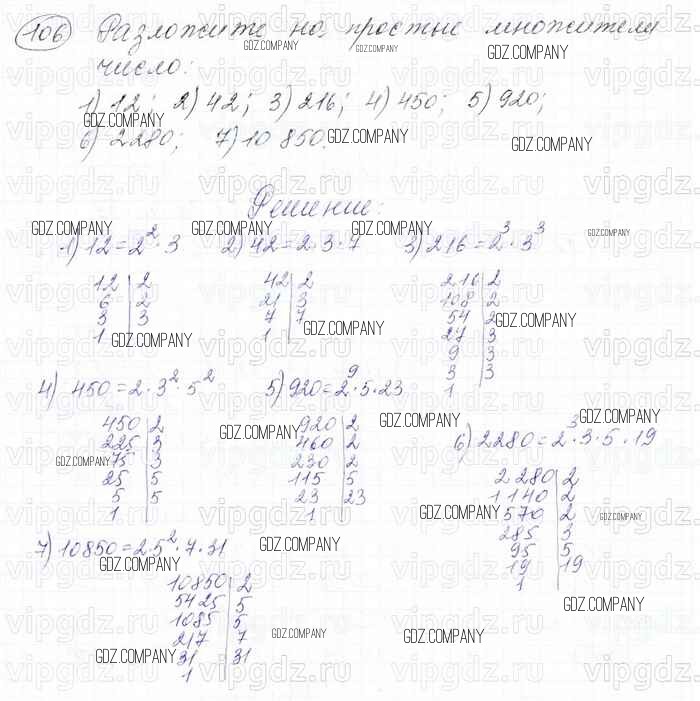 106 Разложите на простые множители
число:
1) 12; 2) 42; 3) 216; 4) 450; 5) 920;
6) 2280; 7) 10 850.
Решение:
1) 12=2²·3 2) 42=2·3·7 3) 216=2³·3³
12|2 42|2 216|2
6|2 21|3 108|2
3|3 7|7 54|2
1 1 27|3
9|3
3|3
1
4) 450=2·3²·5² 5) 920=2⁹·5·23
450|2 920|2
225|3 460|2
75|3 230|2
25|5 115|5
5|5 23|23
1 1
6) 2280=2³·3·5·19
2280|2
1140|2
570|2
285|3
95|5
19|19
1
7) 10850=2·5²·7·31
10850|2
5425|5
1085|5
217|7
31|31
1
GDZ.COMPANY
vipgdz.ru